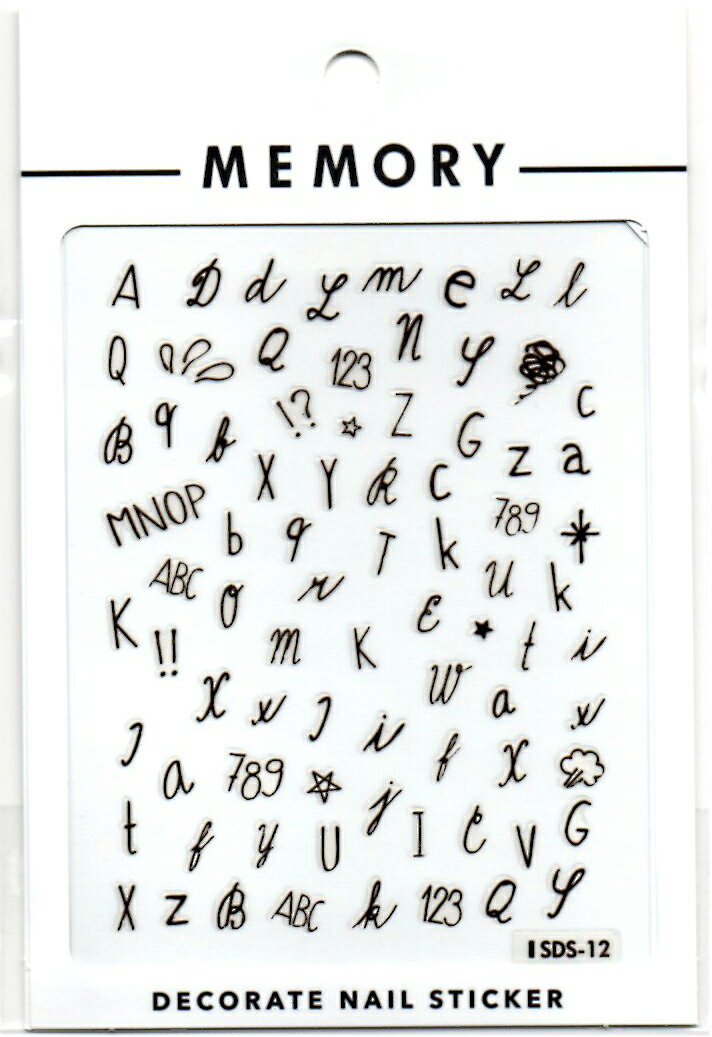 MEMORY
A D d L m e L l
Q Q 123 N S
B q b !? Z G C
X Y R C z a
MNOP b q T k 789
ABC O r U k
K !! m K E t i
X x J i W a x
J a 789 f X
t f y U j I C V G
X z B ABC k 123 Q S
ISDS-12
DECORATE NAIL STICKER